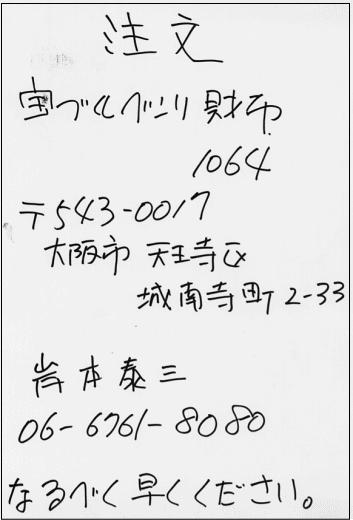 注文
宝づくしがこり財布
1064
〒543-0017
大阪市 天王寺区
城南寺町 2-33
岸本泰三
06-6761-8080
なるべく早くください。